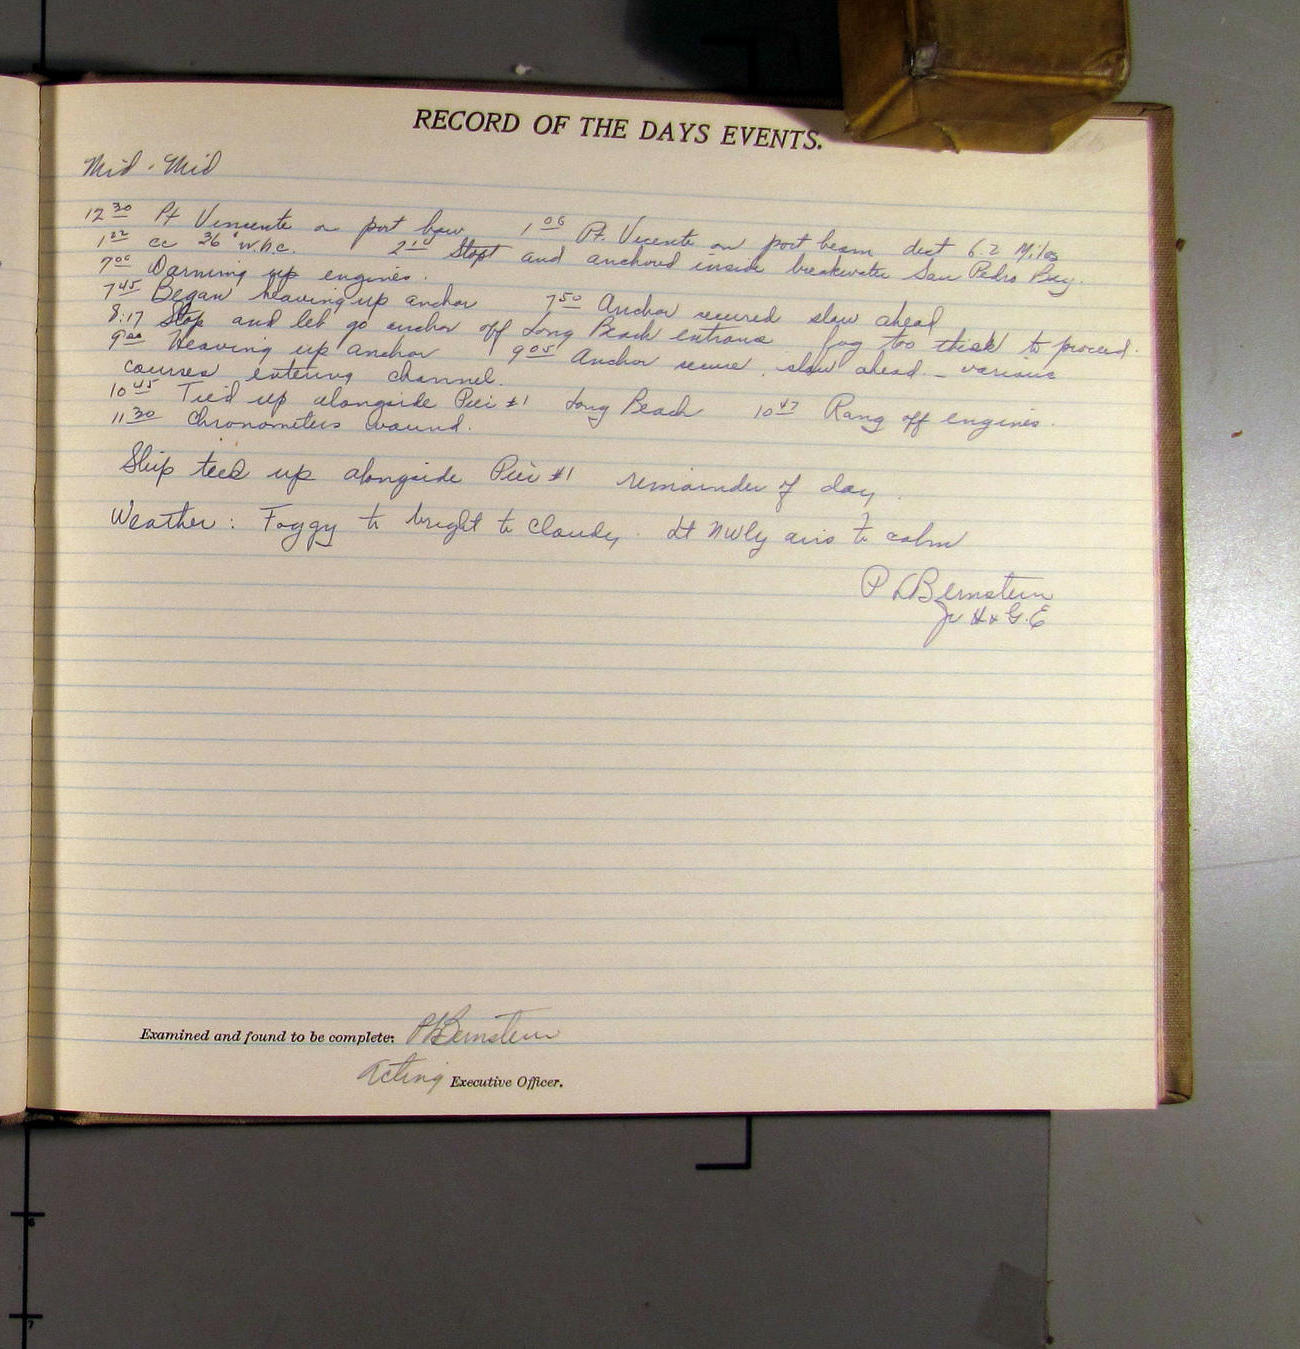 RECORD OF THE DAYS EVENTS.
Mid - Mid
12 30 Pt Vincente on port bow 1 06 Pt. Vicente on port beam dist 6.2 Miles
1 22 cc 36° 2 14 Stopt and anchored inside breakwater San Pedro Bay.
7 00 Warming up engines.
7 45 Began heaving up anchor 7 50 Anchor secured slow ahead
8:17 Stop and let go anchor off Long Beach entrance fog too thick to proceed.
9 00 Heaving up anchor 9 05 Anchor secure, slow ahead - various
courses entering channel.
10 45 Tied up alongside Pier #1 Long Beach 10 47 Rang off engines.
11 30 Chronometers wound.
Ship tied up alongside Pier #1 remainder of day.
Weather: Foggy to bright to cloudy. Lt NWly airs to calm
P L Bernstein
Jr H & G.E
Examined and found to be complete: P L Bernstein
Acting Executive Officer.
6
7